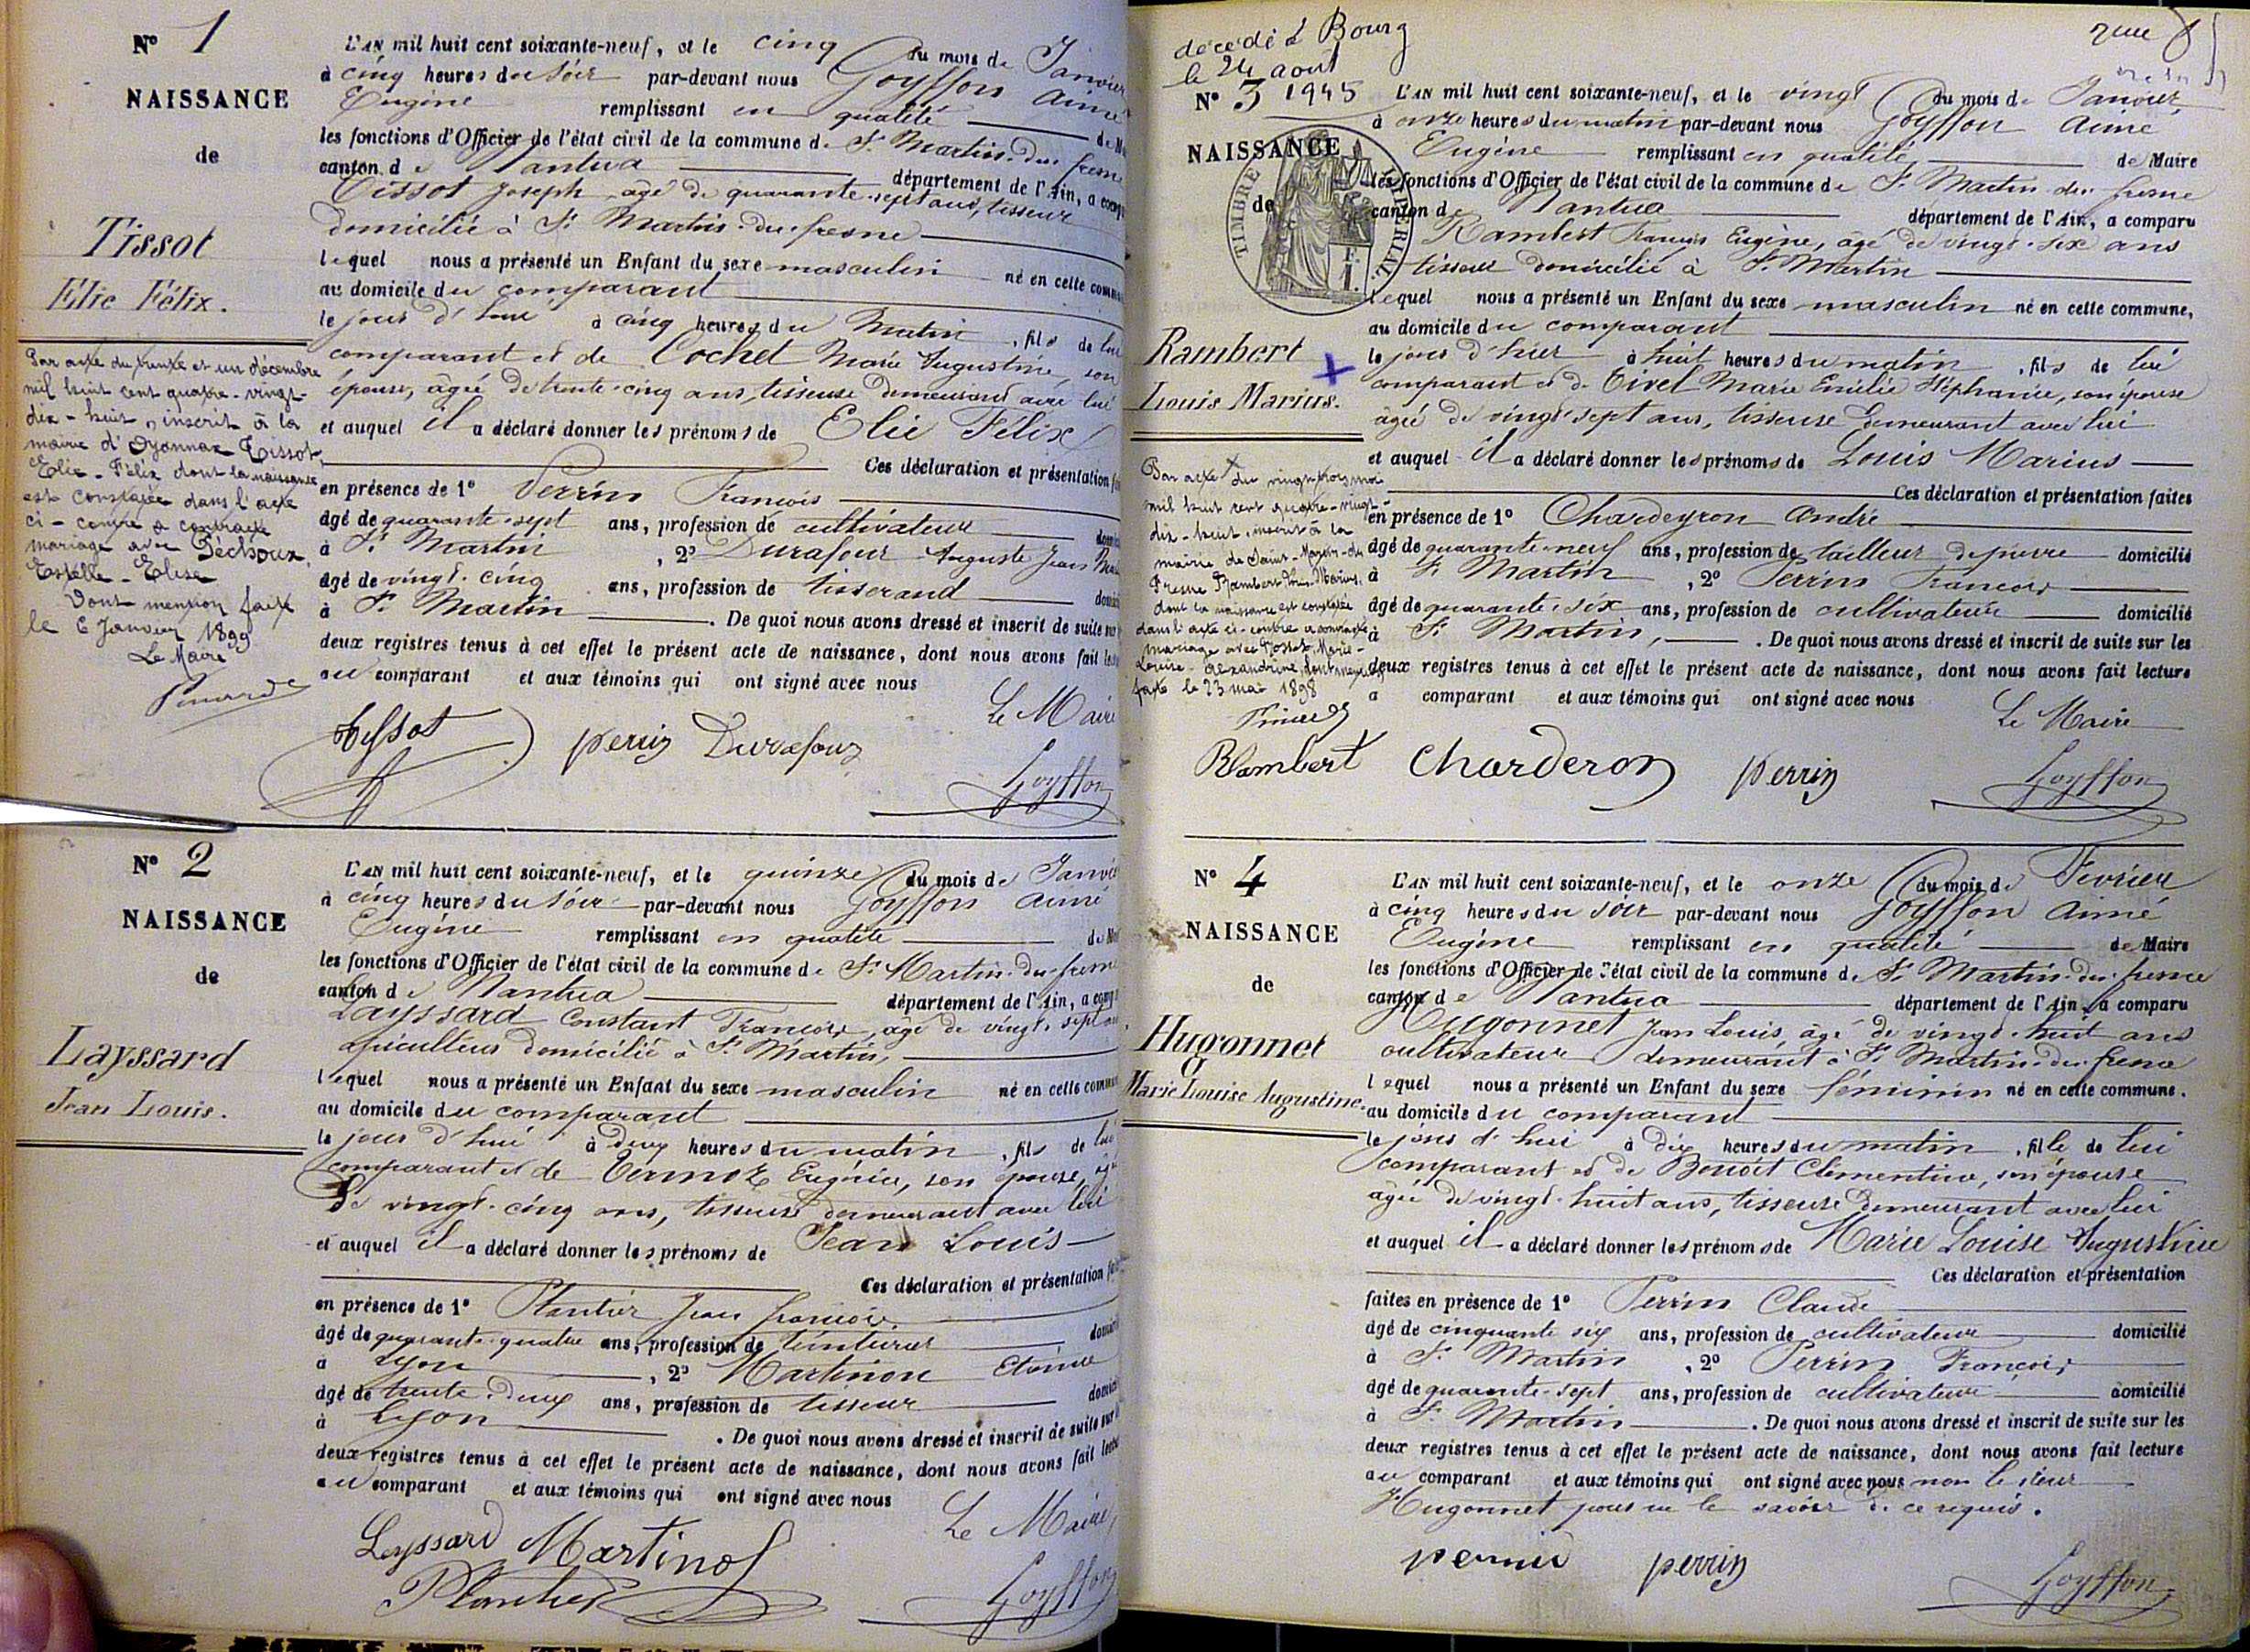 N° 1
NAISSANCE
de
Tissot
Elie Félix.
Par acte du trente et un décembre
mil huit cent quatre-vingt-
dix-huit, inscrit à la
mairie d'Oyonnax Tissot
Elie-Félix dont la naissance
est constatée dans l'acte
ci-contre a contracté
mariage avec Péchoux
Estelle-Elise
Dont mention faite
le 6 Janvier 1899
Le Maire
L'AN mil huit cent soixante-neuf, et le cinq du mois de Janvier
à cinq heures du soir par-devant nous Goyffon Aimé
Eugène remplissant en qualité de M
les fonctions d'Officier de l'état civil de la commune de St Martin-du-fresne
canton de Nantua département de l'Ain, a comp
Tissot Joseph âgé de quarante-sept ans, tisseur
domicilié à St Martin-du-fresne
lequel nous a présenté un Enfant du sexe masculin né en cette comm
au domicile du comparant
le jour d'hui à cinq heures du matin, fils de lui
comparant et de Cochet Marie Augustine, son
épouse, âgée de trente-cinq ans, tisseuse demeurant avec lui
et auquel il a déclaré donner les prénoms de Elie Félix
Ces déclaration et présentation f
en présence de 1° Perrin François
âgé de quarante-sept ans, profession de cultivateur domici
à St Martin, 2° Durafour Auguste Jean
âgé de vingt-cinq ans, profession de tisserand domici
à St Martin. De quoi nous avons dressé et inscrit de suite sur
deux registres tenus à cet effet le présent acte de naissance, dont nous avons fait lec
au comparant et aux témoins qui ont signé avec nous
Le Maire
Tissot perrin Durafour
Goyffon
N° 2
NAISSANCE
de
Layssard
Jean Louis.
L'AN mil huit cent soixante-neuf, et le quinze du mois de Janvie
à cinq heures du soir par-devant nous Goyffon Aimé
Eugène remplissant en qualité de M
les fonctions d'Officier de l'état civil de la commune de St Martin-du-fresne
canton de Nantua département de l'Ain, a comp
Layssard Constant François, âgé de vingt-sept ans
domicilié à St Martin,
lequel nous a présenté un Enfant du sexe masculin né en cette commun
au domicile du comparant
le jour d'hui à deux heures du matin, fils de lui
comparant et de Eugénie, son épouse, âgée
de vingt-cinq ans, tisseuse demeurant avec lui
et auquel il a déclaré donner les prénoms de Jean Louis
Ces déclaration et présentation fa
en présence de 1° Plantier Jean françois
âgé de quarante-quatre ans, profession de teinturier domici
à Lyon, 2° Martinon Etienne
âgé de trente-deux ans, profession de tisseur domici
à Lyon. De quoi nous avons dressé et inscrit de suite sur
deux registres tenus à cet effet le présent acte de naissance, dont nous avons fait lectu
au comparant et aux témoins qui ont signé avec nous
Le Maire,
Leyssard Martinot
Plantier
Goyffon
décédé à Bourg
le 24 août
1945
N° 3
NAISSANCE
de
TIMBRE IMPÉRIAL
Rambert
Louis Marius.
Par acte du vingt-trois mai
mil huit cent quatre-vingt-
dix-huit, inscrit à la
mairie de Saint-Martin-du
Fresne Rambert Louis-Marius,
dont la naissance est constatée
dans l'acte ci-contre a contracté
mariage avec Marie-
Louise-Alexandrine, dont mention
faite le 23 mai 1898
L'AN mil huit cent soixante-neuf, et le vingt du mois de Janvier
à onze heures du matin par-devant nous Goyffon Aimé
Eugène remplissant en qualité de Maire
les fonctions d'Officier de l'état civil de la commune de St Martin-du-fresne
canton de Nantua département de l'Ain, a comparu
Rambert François Eugène, âgé de vingt-six ans
tisseur domicilié à St Martin
lequel nous a présenté un Enfant du sexe masculin né en cette commune,
au domicile du comparant
le jour d'hier à huit heures du matin, fils de lui
comparant et de Tivet Marie Emélie Stéphanie, son épouse
âgée de vingt-sept ans, tisseuse demeurant avec lui
et auquel il a déclaré donner les prénoms de Louis Marius
Ces déclaration et présentation faites
en présence de 1° Chardeyron André
âgé de quarante-neuf ans, profession de tailleur de pierre domicilié
à St Martin, 2° Perrin François
âgé de quarante-six ans, profession de cultivateur domicilié
à St Martin,. De quoi nous avons dressé et inscrit de suite sur les
deux registres tenus à cet effet le présent acte de naissance, dont nous avons fait lecture
a comparant et aux témoins qui ont signé avec nous
Le Maire
Rambert Charderon perrin
Goyffon
N° 4
NAISSANCE
de
Hugonnet
Marie Louise Augustine.
L'AN mil huit cent soixante-neuf, et le onze du mois de Février
à cinq heures du soir par-devant nous Goyffon Aimé
Eugène remplissant en qualité de Maire
les fonctions d'Officier de l'état civil de la commune de St Martin-du-fresne
canton de Nantua département de l'Ain, a comparu
Hugonnet Jean Louis, âgé de vingt-huit ans
cultivateur demeurant à St Martin-du-fresne
lequel nous a présenté un Enfant du sexe féminin né en cette commune.
au domicile du comparant
le jour d'hui à dix heures du matin, fille de lui
comparant et de Benoît Clémentine, son épouse
âgée de vingt-huit ans, tisseuse demeurant avec lui
et auquel il a déclaré donner les prénoms de Marie Louise Augustine
Ces déclaration et présentation
faites en présence de 1° Perrin Claude
âgé de cinquante six ans, profession de cultivateur domicilié
à St Martin, 2° Perrin François
âgé de quarante-sept ans, profession de cultivateur domicilié
à St Martin. De quoi nous avons dressé et inscrit de suite sur les
deux registres tenus à cet effet le présent acte de naissance, dont nous avons fait lecture
au comparant et aux témoins qui ont signé avec nous non le sieur
Hugonnet pour ne le savoir de ce requis.
perrin perrin
Goyffon